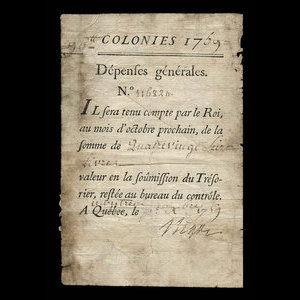 COLONIES 1759
Dépenses générales.
N.º
IL sera tenu compte par le Roi,
au mois d'octobre prochain, de la
somme de Quatre vingt seize
livres
valeur en la soûmission du Tréso-
rier, restée au bureau du contrôle.
A Québec, le